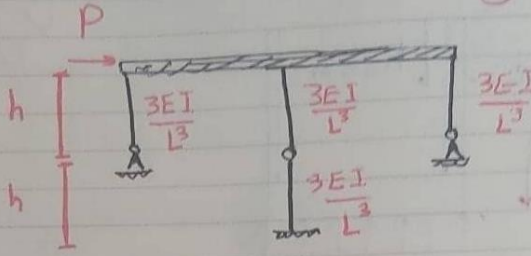 P
h
h
3EI
L³
3EI
L³
3EI
L³
3EI
L³